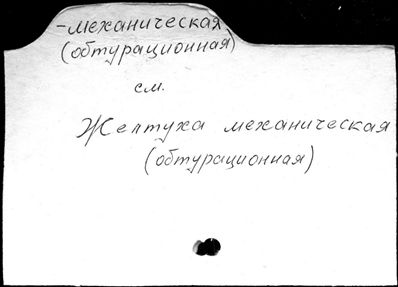 -механическая
(обтурационная)
см.
Желтуха механическая
(обтурационная)